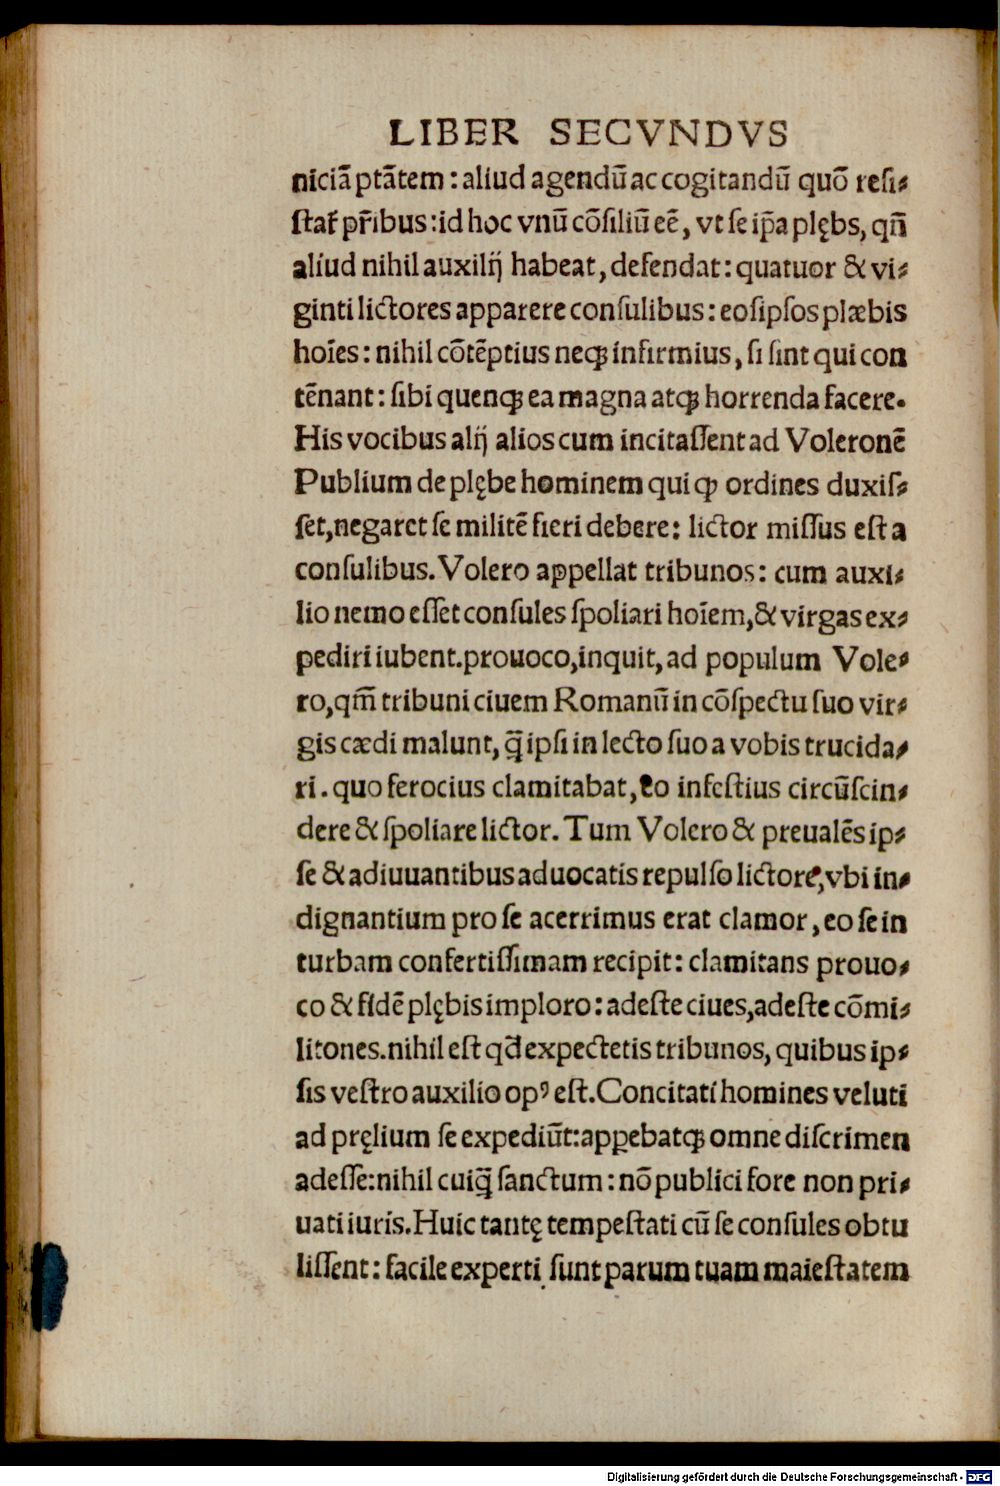 LIBER SECVNDVS
niciã ptãtem : aliud agendũ ac cogitandũ quõ resi⸗
ſtat᷑ pr̃ibus : id hoc vnũ cõſiliũ eẽ, vt ſe ip̃a plębs, qñ
aliud nihil auxilĳ habeat, defendat : quatuor & vi⸗
ginti lictores apparere conſulibus : eos ipſos plæbis
hoı̃es : nihil cõtẽptius neqꝫ infirmius, ſi ſint qui con
tẽnant : ſibi quenqꝫ ea magna atqꝫ horrenda facere.
His vocibus alĳ alios cum incitaſſent ad Voleronẽ
Publium de plębe hominem qui qꝫ ordines duxiſ⸗
ſet, negaret ſe militẽ fieri debere : lictor miſſus eſt a
conſulibus. Volero appellat tribunos : cum auxi⸗
lio nemo eſſet conſules ſpoliari hoı̃em, & virgas ex⸗
pediri iubent. prouoco, inquit, ad populum Vole⸗
ro, qm̃ tribuni ciuem Romanũ in cõſpectu ſuo vir⸗
gis cædi malunt, q̃ ipſi in lecto ſuo a vobis trucida⸗
ri. quo ferocius clamitabat, eo infeſtius circũſcin⸗
dere & ſpoliare lictor. Tum Volero & preualẽs ip⸗
ſe & adiuuantibus aduocatis repulſo lictore, vbi in⸗
dignantium pro ſe acerrimus erat clamor, eo ſe in
turbam confertiſſimam recipit : clamitans prouo⸗
co & fidẽ plębis imploro : adeſte ciues, adeſte cõmi⸗
litones. nihil eſt qd̃ expectetis tribunos, quibus ip⸗
ſis veſtro auxilio opꝰ eſt. Concitati homines veluti
ad pręlium ſe expediũt : apꝑebatqꝫ omne diſcrimen
adeſſe : nihil cuiq̃ ſanctum : nõ publici fore non pri⸗
uati iuris. Huic tantę tempeſtati cũ ſe conſules obtu
liſſent : facile experti ſunt parum tuam maieſtatem
Digitalisierung gefördert durch die Deutsche Forschungsgemeinschaft - DFG